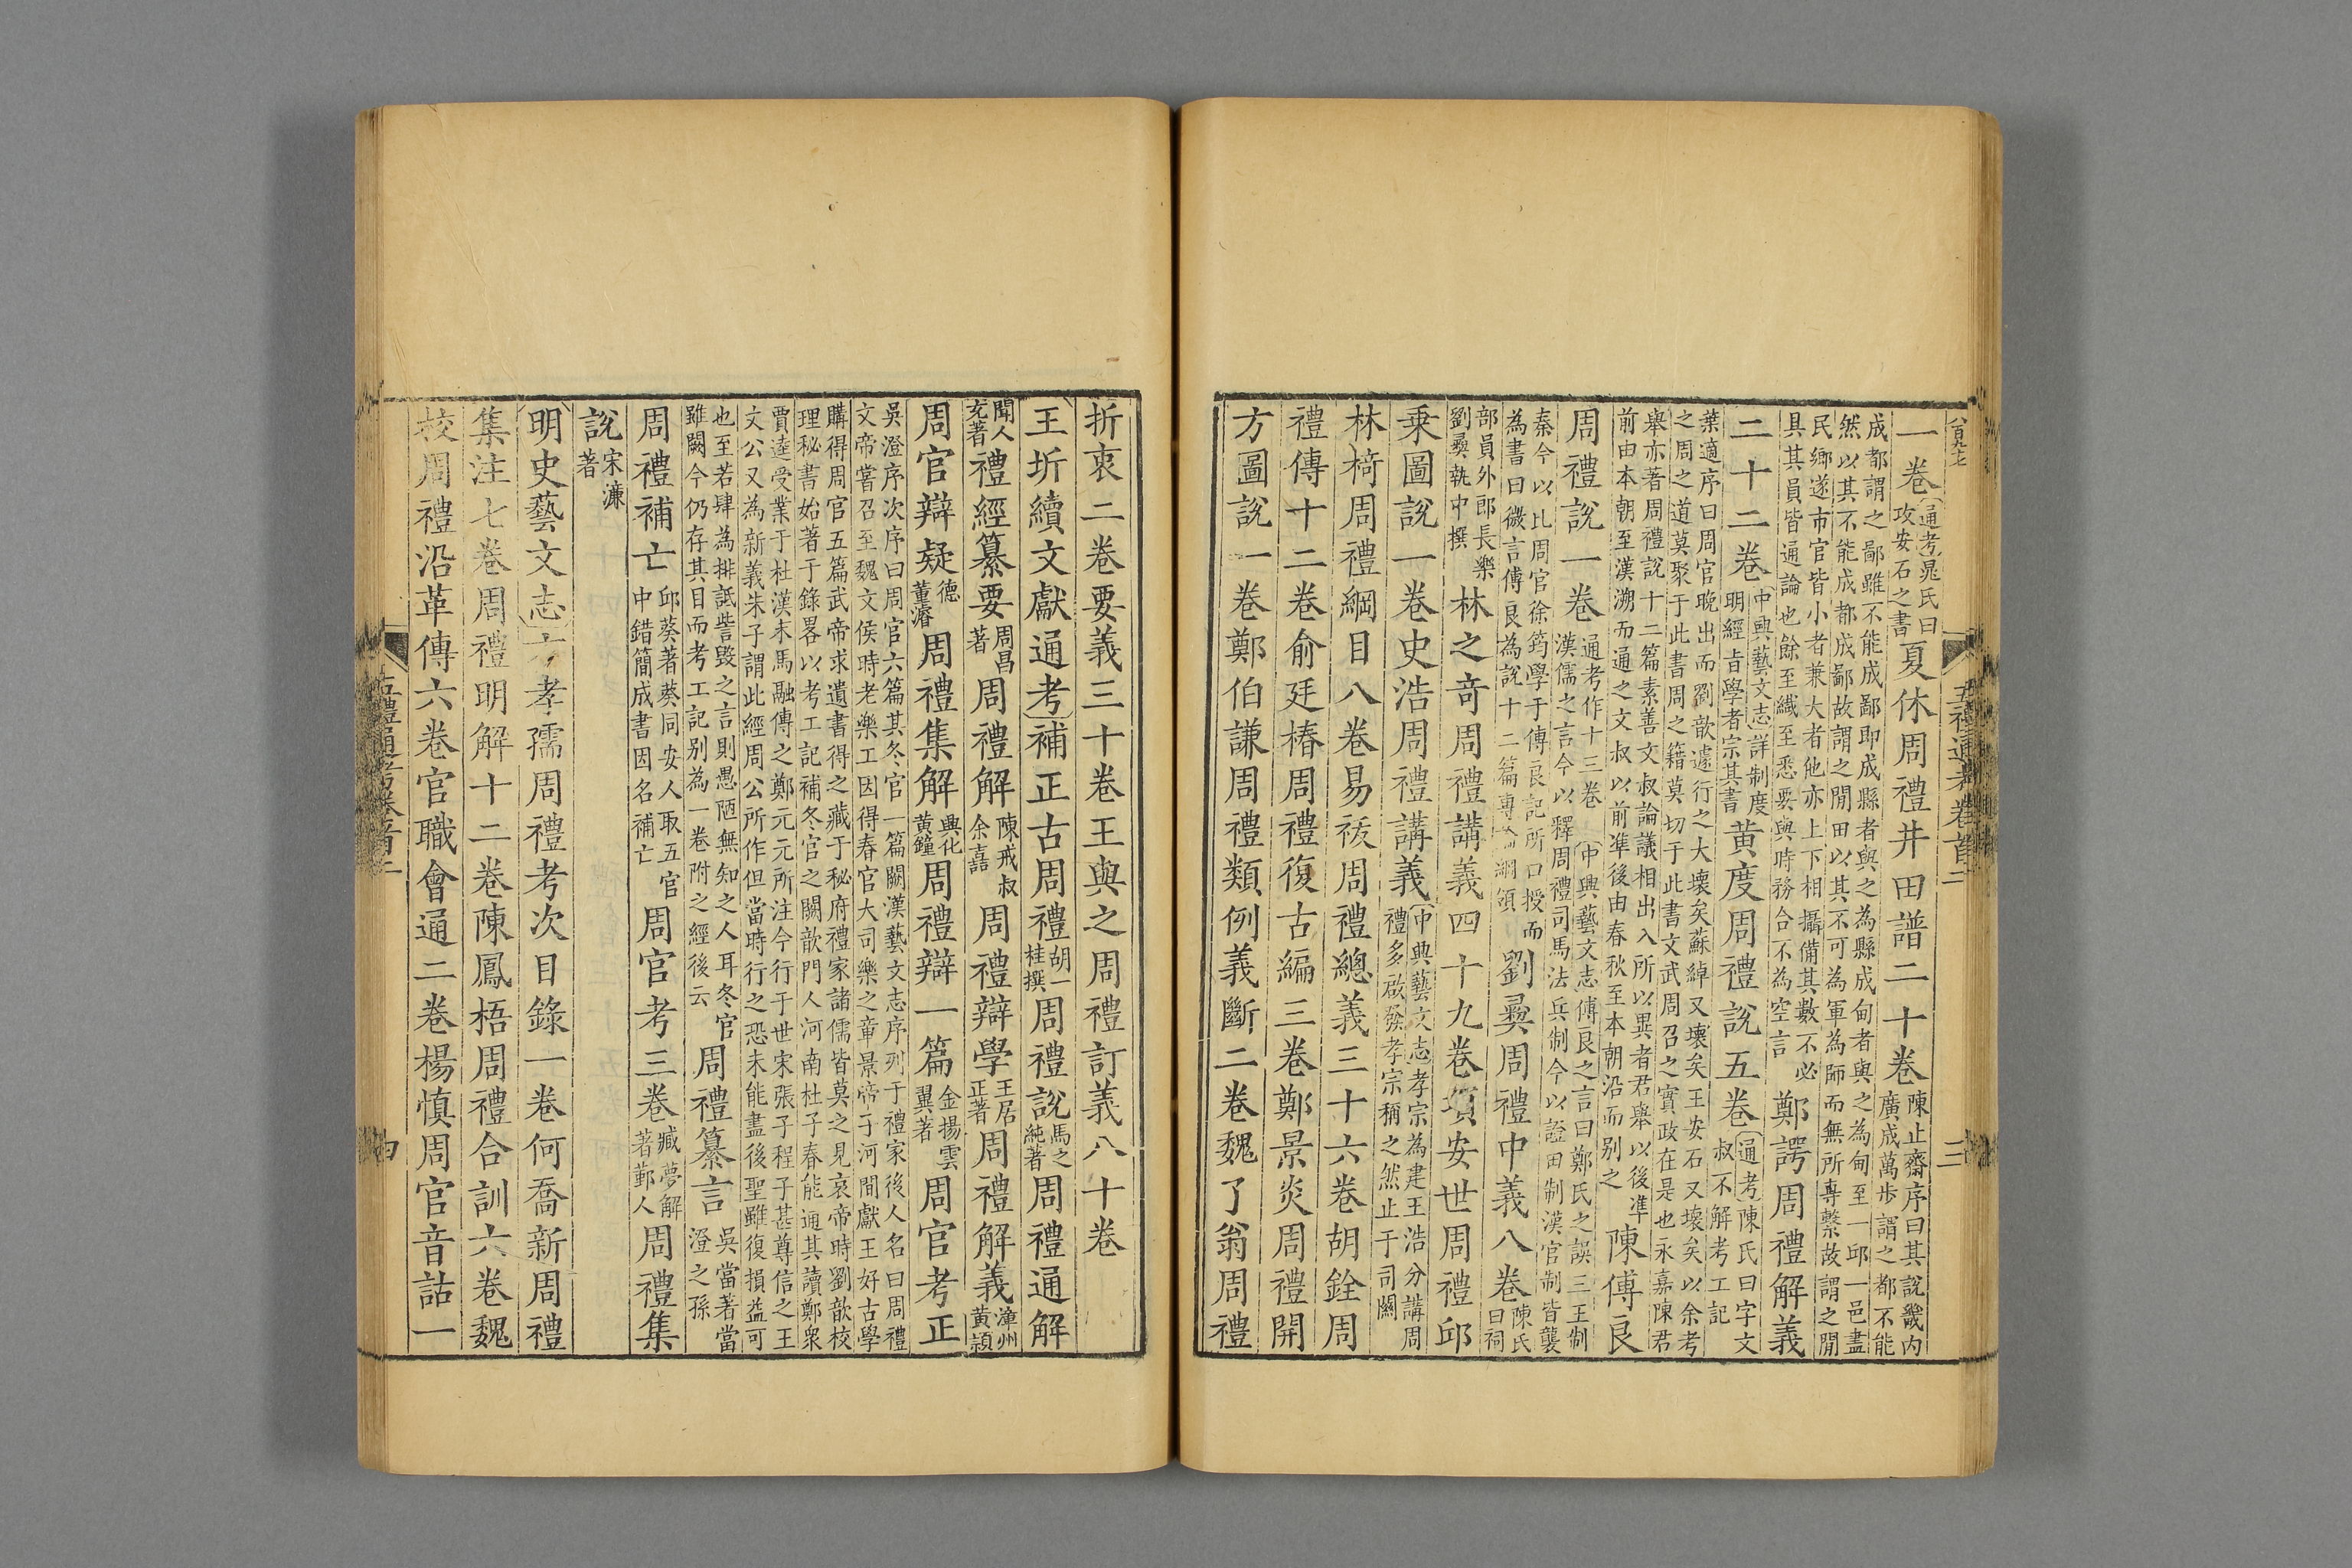 八百九七
五禮通考卷首二
三
一卷通考晁氏曰攻安石之書夏休周禮井田譜二十卷陳止齋序曰其說畿內廣成萬步謂之都不能
成都謂之鄙雖不能成鄙即成縣者與之為縣成甸者與之為甸至一邱一邑盡
然以其不能成都成鄙故謂之閒田以其不可為軍為師而無所專繫故謂之閒
民鄉遂市官皆小者兼大者他亦上下相攝備其數不必
具其員皆通論也餘至纖至悉要與時務合不為空言鄭諤周禮解義
二十二卷中興藝文志詳制度明經旨學者宗其書黃度周禮說五卷通考陳氏曰字文叔不解考工記
葉適序曰周官晚出而劉歆遽行之大壞矣蘇綽又壞矣王安石又壞矣以余考
之周之道莫聚于此書周之籍莫切于此書文武周召之實政在是也永嘉陳君
舉亦著周禮說十二篇素善文叔論議相出入所以異者君舉以後準
前由本朝至漢溯而通之文叔以前準後由春秋至本朝沿而别之陳傅良
周禮說一卷通考作十三卷中興藝文志傅良之言曰鄭氏之誤三王制漢儒之言今以釋周禮司馬法兵制今以證田制漢官制皆襲
秦今以比周官徐筠學于傅良記所口授而
為書曰微言傅良為說十二篇專論綱領劉彝周禮中義八卷陳氏曰祠
部員外郎長樂劉彝執中撰林之奇周禮講義四十九卷項安世周禮邱
乘圖說一卷史浩周禮講義中興藝文志孝宗為建王浩分講周禮多啟發孝宗稱之然止于司關
林椅周禮綱目八卷易祓周禮總義三十六卷胡銓周
禮傳十二卷俞廷椿周禮復古編三卷鄭景炎周禮開
方圖說一卷鄭伯謙周禮類例義斷二卷魏了翁周禮
折衷二卷要義三十卷王與之周禮訂義八十卷
王圻續文獻通考補正古周禮胡一桂撰周禮說馬之純著周禮通解
聞人充著禮經纂要周昌著周禮解陳戒叔余嚞周禮辯學王居正著周禮解義漳州黃潁
周官辯疑德董濬周禮集解興化黃鐘周禮辯一篇金揚雲翼著周官考正
吳澄序次序曰周官六篇其冬官一篇闕漢藝文志序列于禮家後人名曰周禮
文帝嘗召至魏文侯時老樂工因得春官大司樂之章景帝子河間獻王好古學
購得周官五篇武帝求遺書得之藏于秘府禮家諸儒皆莫之見哀帝時劉歆校
理秘書始著于錄畧以考工記補冬官之闕歆門人河南杜子春能通其讀鄭衆
賈逵受業于杜漢末馬融傳之鄭元元所注今行于世宋張子程子甚尊信之王
文公又為新義朱子謂此經周公所作但當時行之恐未能盡後聖雖復損益可
也至若肆為排詆訾毀之言則愚陋無知之人耳冬官
雖闕今仍存其目而考工記别為一卷附之經後云周禮纂言吳當著當澄之孫
周禮補亡邱葵著葵同安人取五官中錯簡成書因名補亡周官考三卷臧夢解著鄞人周禮集
說宋濂著
明史藝文志方孝孺周禮考次目錄一卷何喬新周禮
集注七卷周禮明解十二卷陳鳳梧周禮合訓六卷魏
校周禮沿革傳六卷官職會通二卷楊慎周官音詁一
五禮通考卷首二